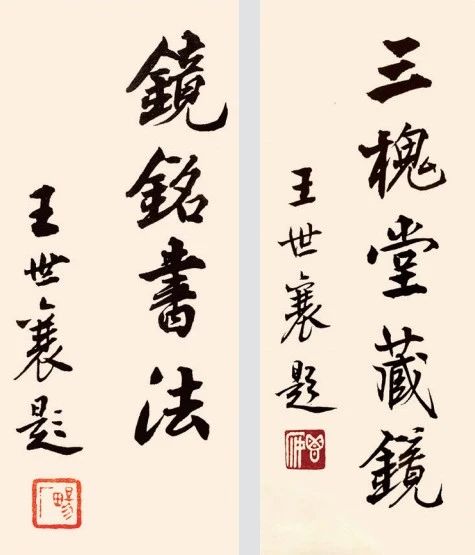 鏡銘書法
王世襄題
三槐堂藏鏡
王世襄題